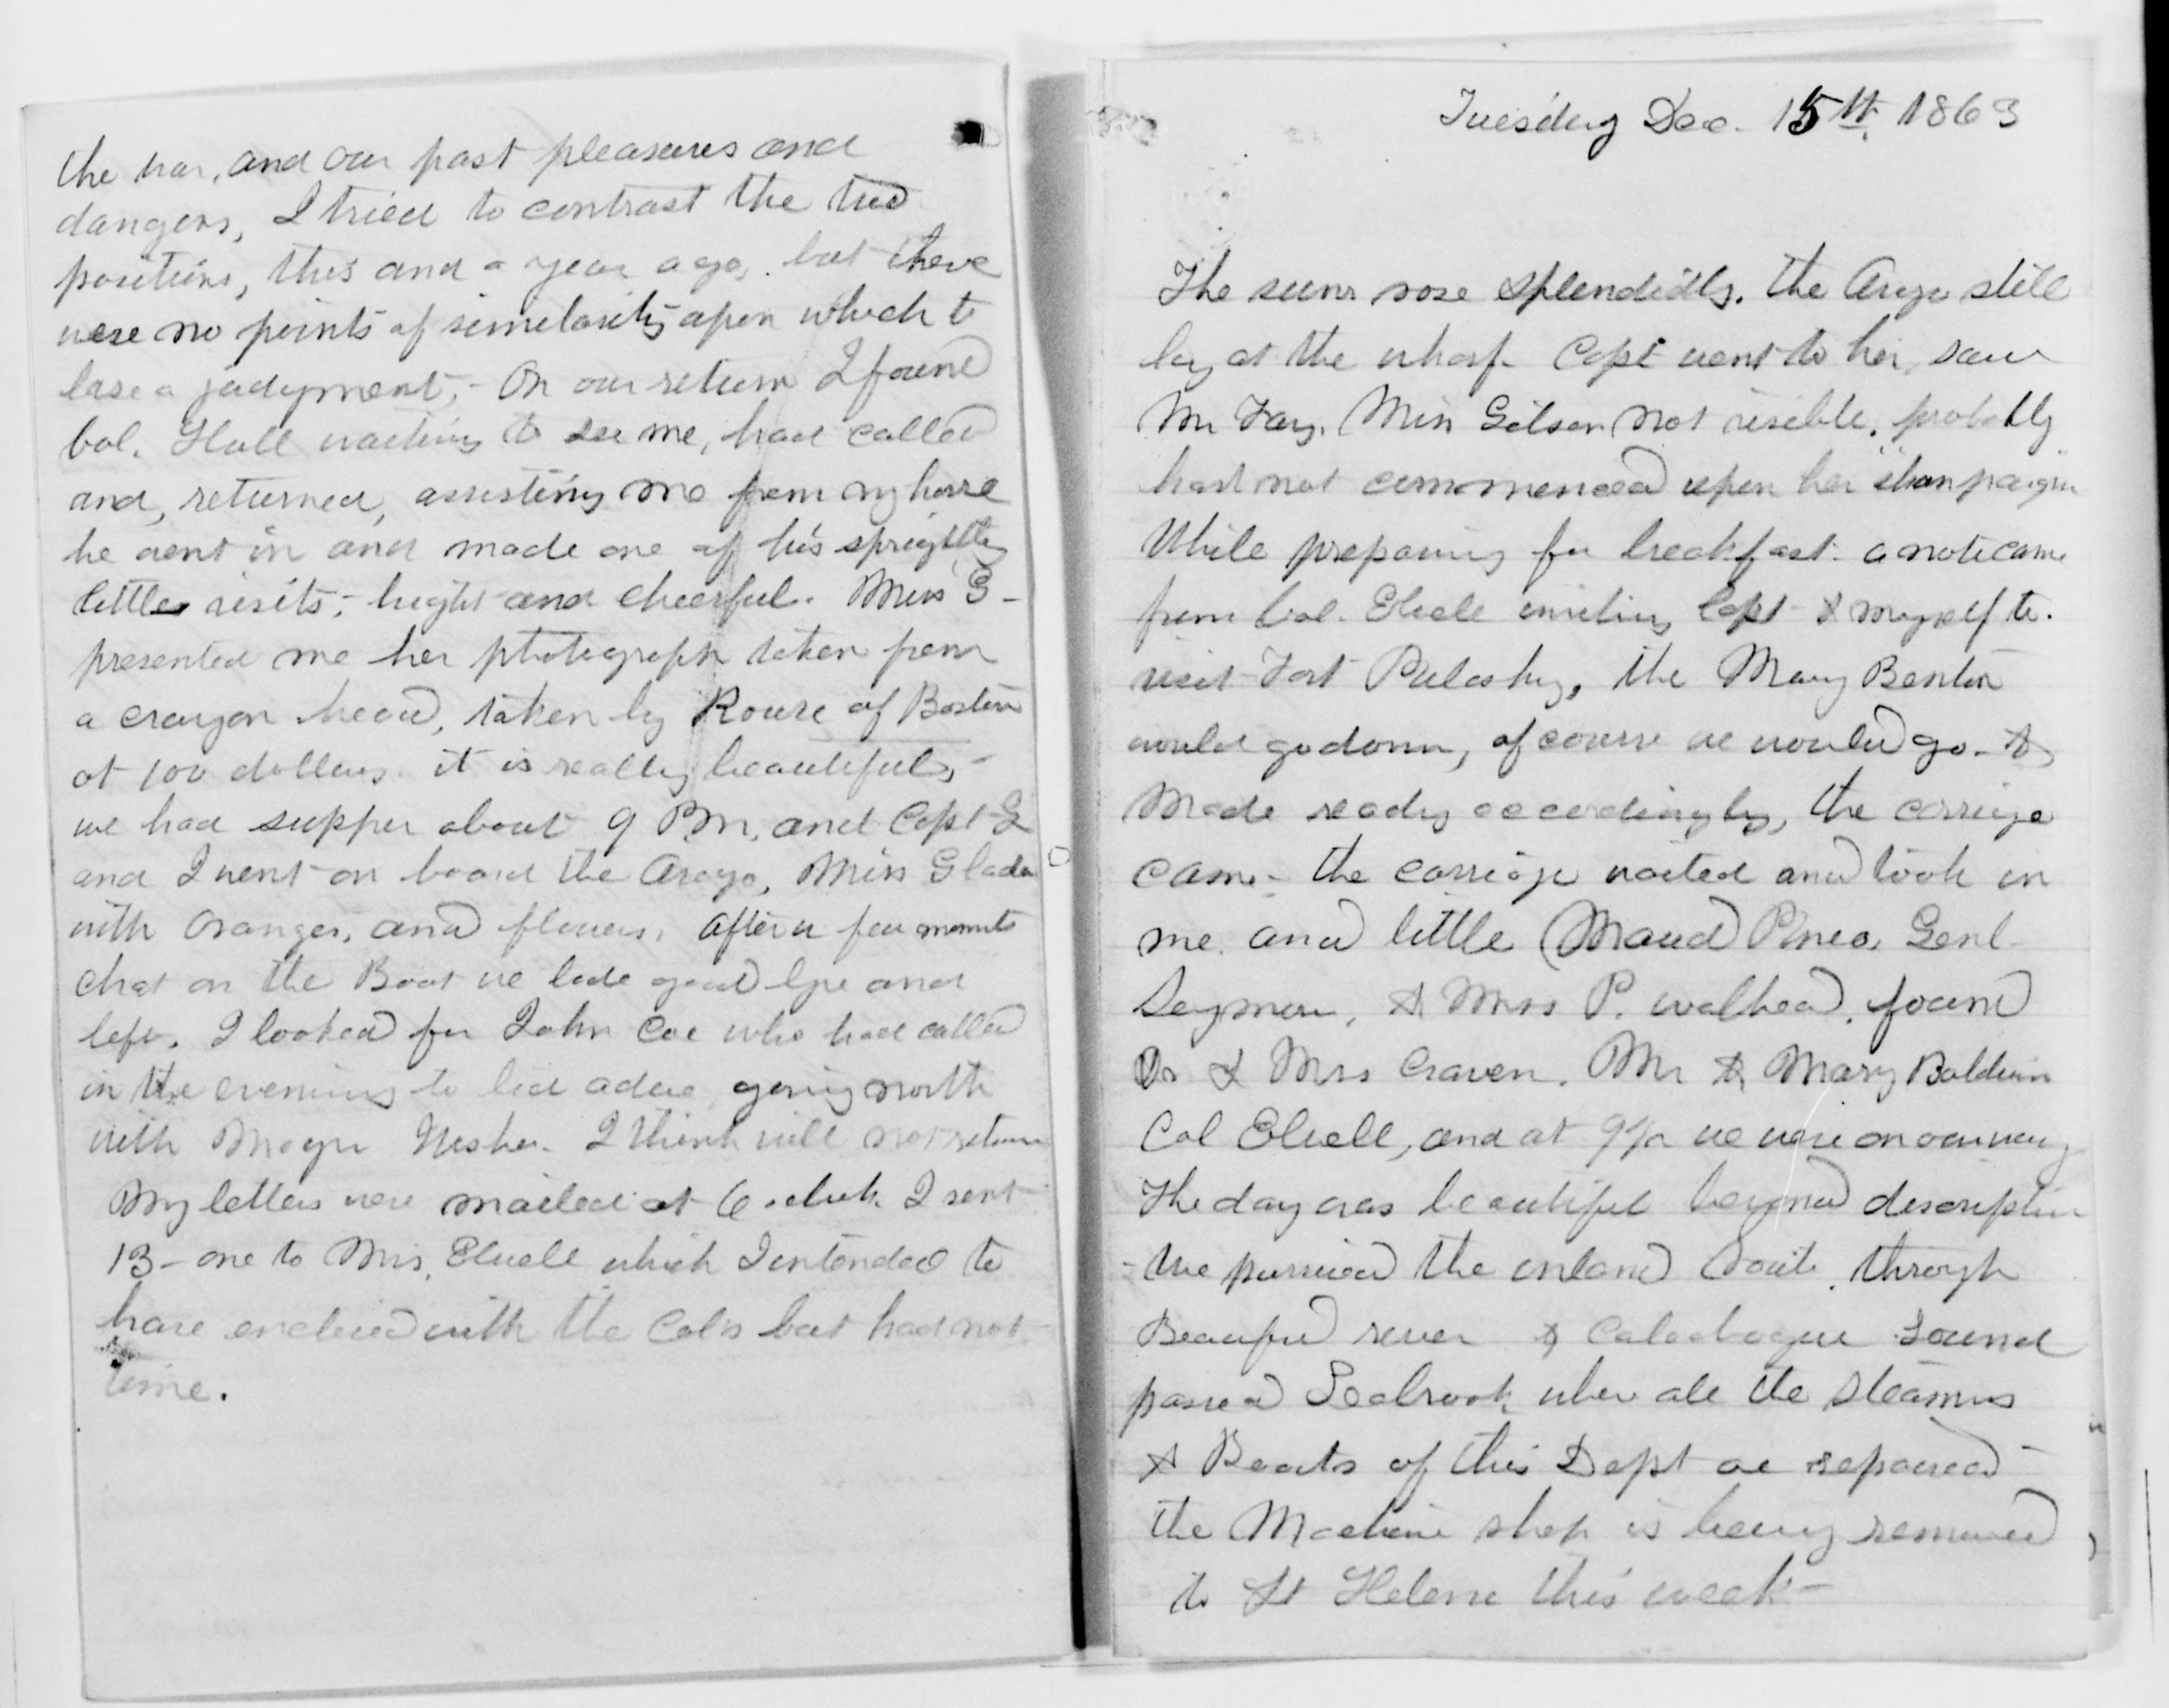 the war, and our past pleasures and
dangers, I tried to contrast the two
positions, this and a year ago, but there
were no points of similarity upon which to
base a judgment, - On our return I found
Col. Hall waiting to see me, had called
and, returned, assisting me from my horse
he went in and made one of his sprightly
little visits, - bright and cheerful. Miss G -
presented me her photograph taken from
a crayon head, taken by Rouse of Boston
at 100 dollars. it is really beautiful, -
we had supper about 9 PM, and Capt L
and I went on board the Arago, Miss G lade
with oranges, and flowers, after a few moments
chat on the Boat we bade good bye and
left. I looked for John Coe who had called
in the evening to bid adieu, going north
with Mayor I think will not return
My letters were mailed at 6 oclock. I sent
13 - one to Mrs. Elwell which I intended to
have enclosed with the Cols but had not
time.
Tuesday Dec. 15th 1863
The sun rose splendidly. the Arago still
lay at the wharf - Capt went to her, saw
Mr Fay, Miss Gilson not visible, probably
had not commenced upon her "shampaign"
While preparing for breakfast - a note came
from Col. Elwell inviting Capt & myself to
visit Fort Pulasky, the Mary Benton
would go down, of course we would go - &
Made ready accordingly, the carriage
came - the carriage waited and took in
me and little (Maud) Pineo, Genl -
Seymore, & Mrs P. walked, found
Dr & Mrs Craven. Mr & Mary Baldwin
Col Elwell, and at 9 1/2 we were on our way
The day was beautiful beyond description
- We pursued the inland route, through
Beauford river & Calabogue Sound
passed Seabrook where all the steamers
& Boats of this Dept are repaired -
the Machine shop is being removed
to St Helene this week -